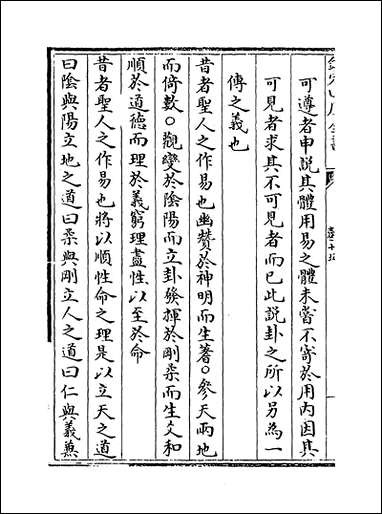 可遵者申説其體用易之體未嘗不寄於用内因其
可見者求其不可見者而已此説卦之所以另為一
傳之義也
昔者聖人之作易也幽贊於神明而生蓍○參天兩地
而倚數○觀變於陰陽而立卦發揮於剛柔而生爻和
順於道德而理於義窮理盡性以至於命
昔者聖人之作易也將以順性命之理是以立天之道
曰陰與陽立地之道曰柔與剛立人之道曰仁與義兼